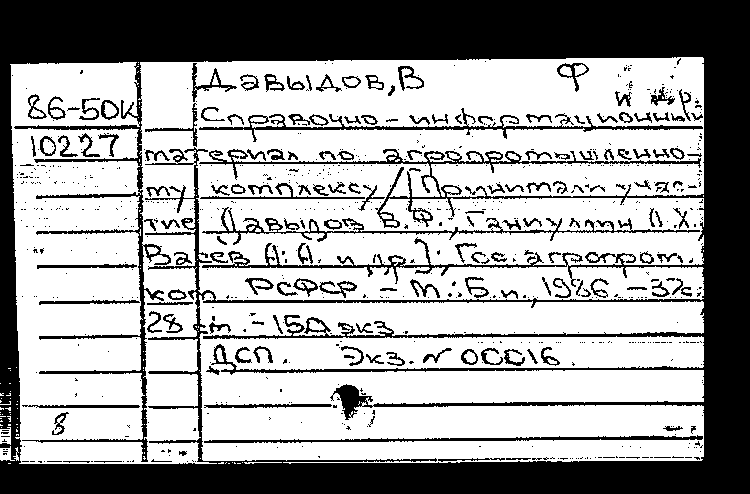 Давыдов, В Ф
и др.
86-50к
Справочно-информационный
10227
материал по агропромышленно-
му комплексу / [Принимали учас-
тие Давыдов В.Ф., Ганиуллин А.Х.,
Васев А.А. и др.]; Гос. агропром.
ком. РСФСР. - М.: Б.и., 1986. - 37с.
28 см. - 150 экз.
ДСП. Экз. N 00016.
8